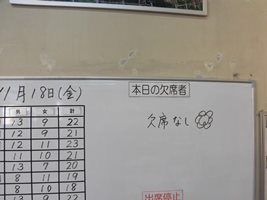 11月18日(金)
本日の欠席者
欠席なし
男 女 計
13 9 22
12 9 21
12 11 23
11 10 21
13 7 20
8 11 19
8 10 18
13 9 22
出席停止